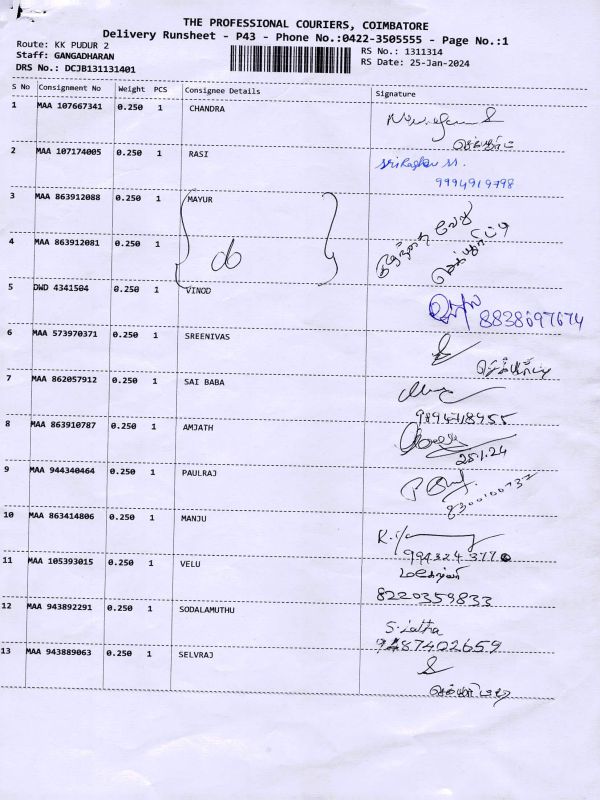 THE PROFESSIONAL COURIERS, COIMBATORE
Delivery Runsheet - P43 - Phone No.:0422-3505555 - Page No.:1
Route: KK PUDUR 2
Staff: GANGADHARAN
DRS No.: DCJB131131401
RS No.: 1311314
RS Date: 25-Jan-2024
S No Consignment No Weight PCS Consignee Details Signature
1 MAA 107667341 0.250 1 CHANDRA
2 MAA 107174005 0.250 1 RASI
9994919798
3 MAA 863912088 0.250 1 MAYUR
4 MAA 863912081 0.250 1
5 DWD 4341504 0.250 1 VINOD
8838697674
6 MAA 573970371 0.250 1 SREENIVAS
7 MAA 862057912 0.250 1 SAI BABA
8 MAA 863910787 0.250 1 AMJATH
25.1.24
9 MAA 944340464 0.250 1 PAULRAJ
10 MAA 863414806 0.250 1 MANJU
11 MAA 105393015 0.250 1 VELU
8220359833
12 MAA 943892291 0.250 1 SODALAMUTHU
S. Latha
13 MAA 943889063 0.250 1 SELVRAJ